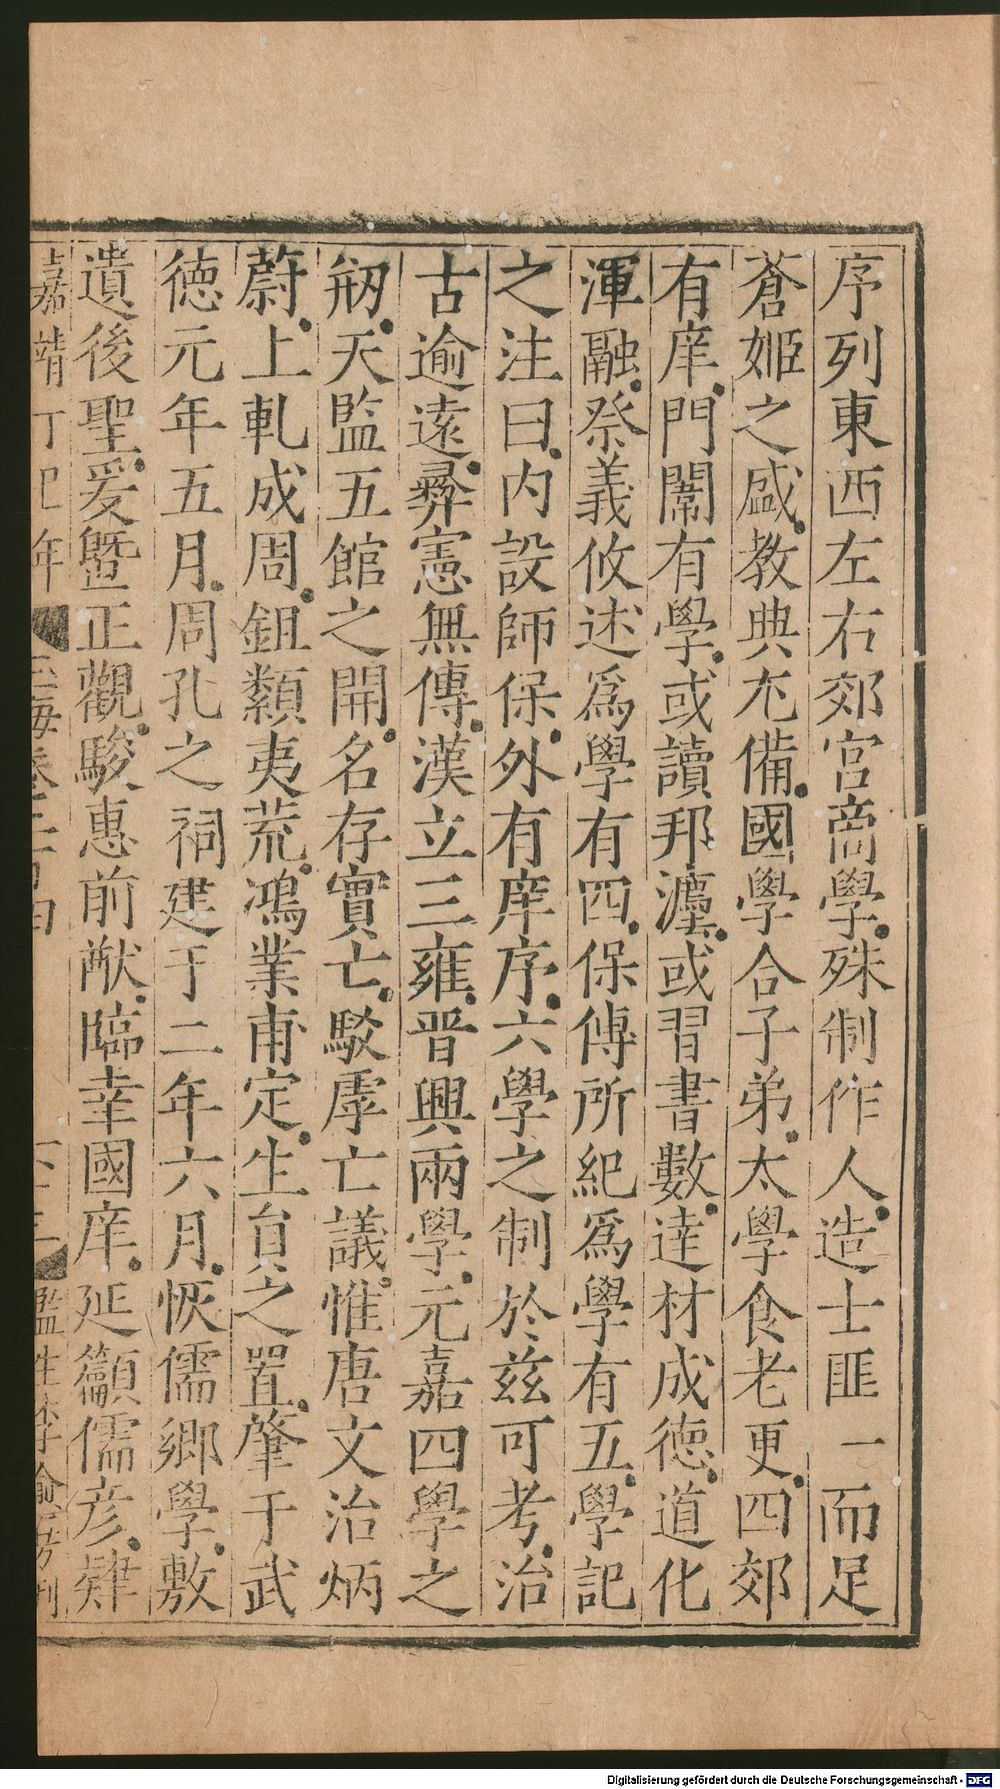 序列東西左右郊宮啇學殊制作人造士匪一而足
蒼姬之盛教典尤備國學合子弟太學食老更四郊
有庠門闈有學或讀邦灋或習書數達材成德道化
渾融祭義攸述爲學有四保傅所紀爲學有五學記
之注曰內設師保外有庠序六學之制於兹可考治
古逾遠彝憲無傳漢立三雍晋興兩學元嘉四學之
剏天監五館之開名存實亡駮虖亡議惟唐文治炳
蔚上軋成周鉏纇夷荒鴻業甫定生員之置肇于武
德元年五月周孔之祠建于二年六月恢儒鄉學敷
遺後聖爰曁正觀駿惠前猷臨幸國庠延籲儒彦肄
嘉靖丁巳年
海卷二百四
監生李
刊
Digitalisierung gefördert durch die Deutsche Forschungsgemeinschaft - DFG